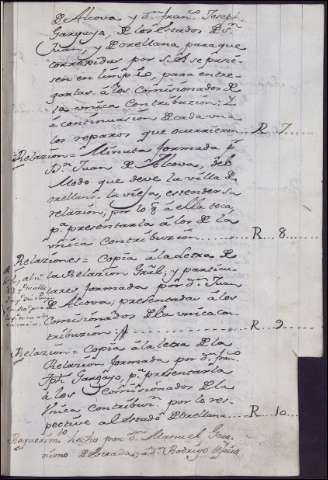 de Alcova, y dn. Franco. Joseph
Gargayo, de los Estados de Sn.
Juan, y Orellana, para que
corregidas por S. E. se pusie-
sen en limpio, para entre-
garlas a los Comisionados de
la unica Contribuzion: Y
a continuacion de cada una
los reparos que ocurrieron. R 7.
Relazion = Minuta formada pr.
Dn. Juan de Alcova, del
Modo que deve la villa de
Orellana la vieja, estender su
relazion, por lo q. a ella toca,
pa. presentarla a los de la
unica Contribuzion. R. 8.
Relaziones = Copia a la letra de
la Relazion Gral. y particu-
lares, formada por dn. Juan
de Alcova, presentadas a los
Comisionados de la unica con-
tribuzion. R. 9.
Relazion = Copia a la letra de la
Relazion formada por dn. Franco.
Jph. Gargayo, pa. presentarla
a los Comisionados de la
Unica contribucn. por lo res-
pective al Estado de Orellana. R. 10.
Requerimto. hecho por dn. Manuel
de Estrada, a dn. Rodrigo